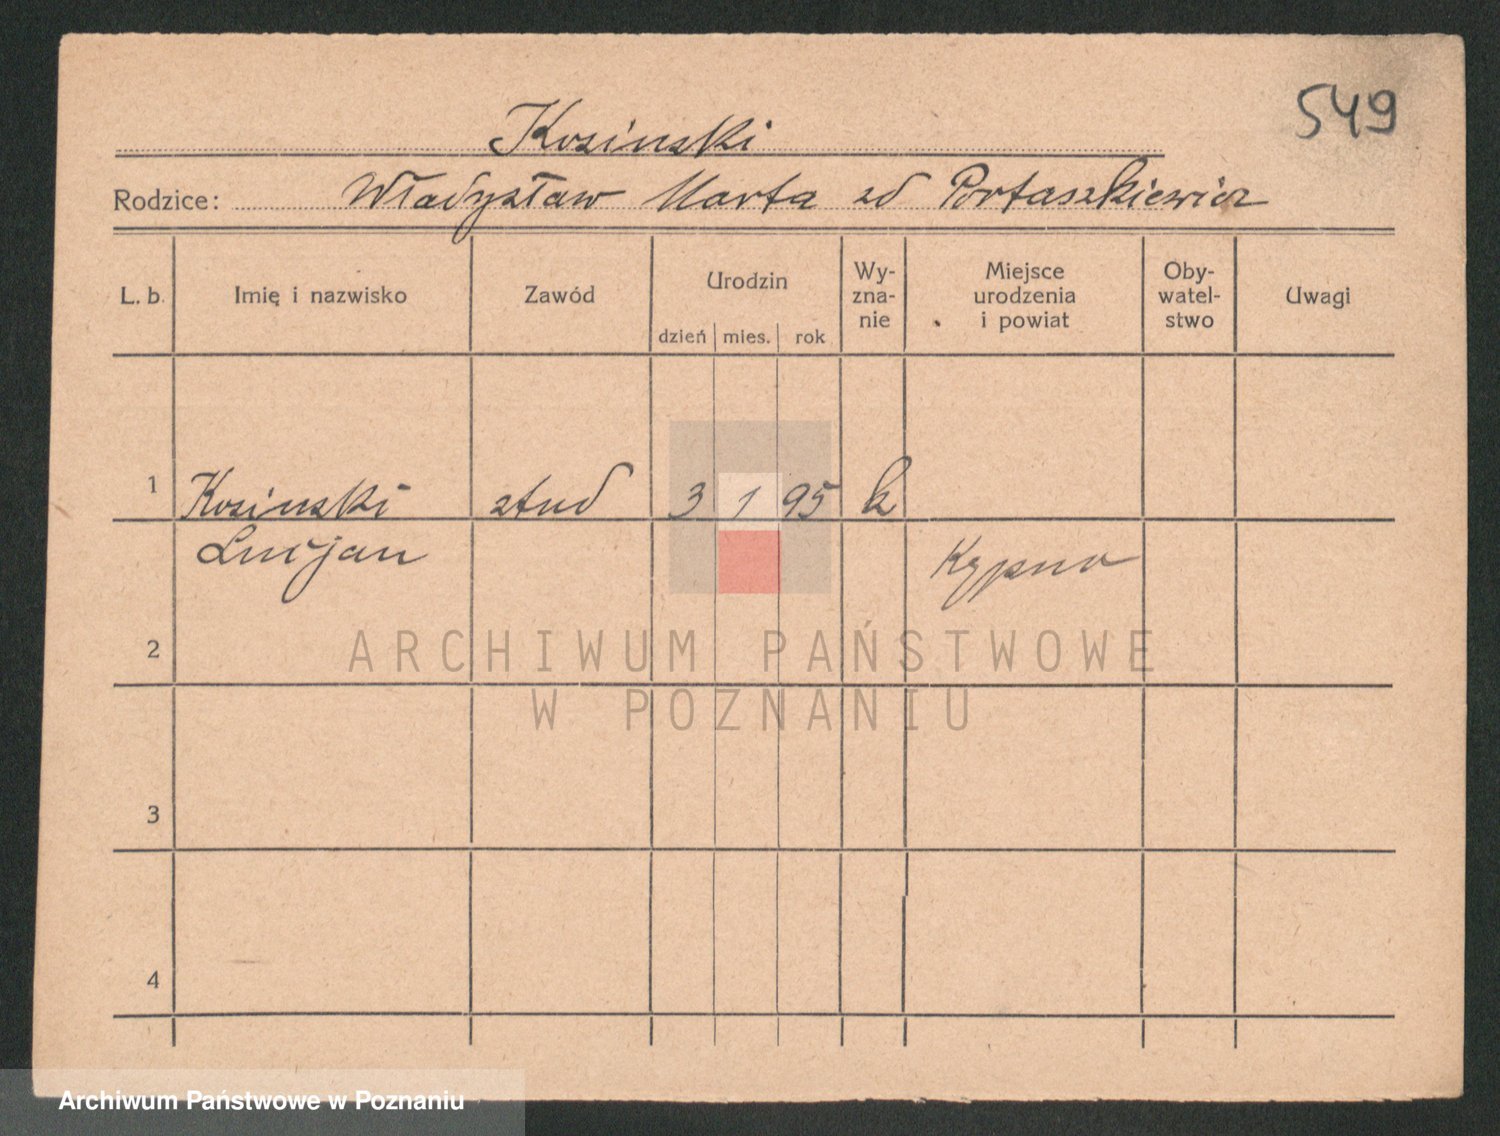 549
Kosinski
Rodzice: Władysław Marta zd Portaszkiewicz
L. b. Imię i nazwisko Zawód Urodzin dzień mies. rok Wy-zna-nie Miejsce urodzenia i powiat Oby-watel-stwo Uwagi
1 Kosinski stud 3 1 95 k
Lucjan
Kcypno
2
ARCHIWUM PAŃSTWOWE
W POZNANIU
3
4
Archiwum Państwowe w Poznaniu